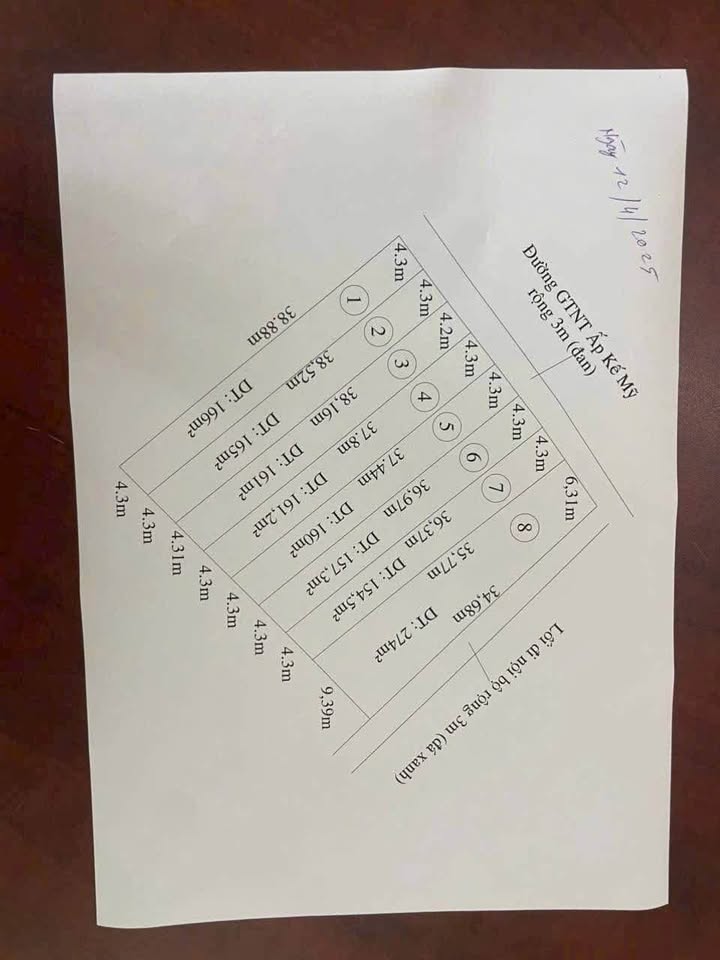 Ngày 12/4/2025
Đường GTNT Ấp Kế Mỹ
rộng 3m (đan)
4.3m
4.3m
4.2m
4.3m
4.3m
4.3m
4.3m
6,31m
1
2
3
4
5
6
7
8
38.88m
38,52m
38,16m
37.8m
37.44m
36,97m
36,37m
35,77m
34,68m
DT: 166m²
DT: 165m²
DT: 161m²
DT: 161,2m²
DT: 160m²
DT: 157,3m²
DT: 154,5m²
DT: 274m²
4.3m
4.3m
4.31m
4.3m
4.3m
4.3m
4.3m
9,39m
Lối đi nội bộ rộng 3m (đá xanh)